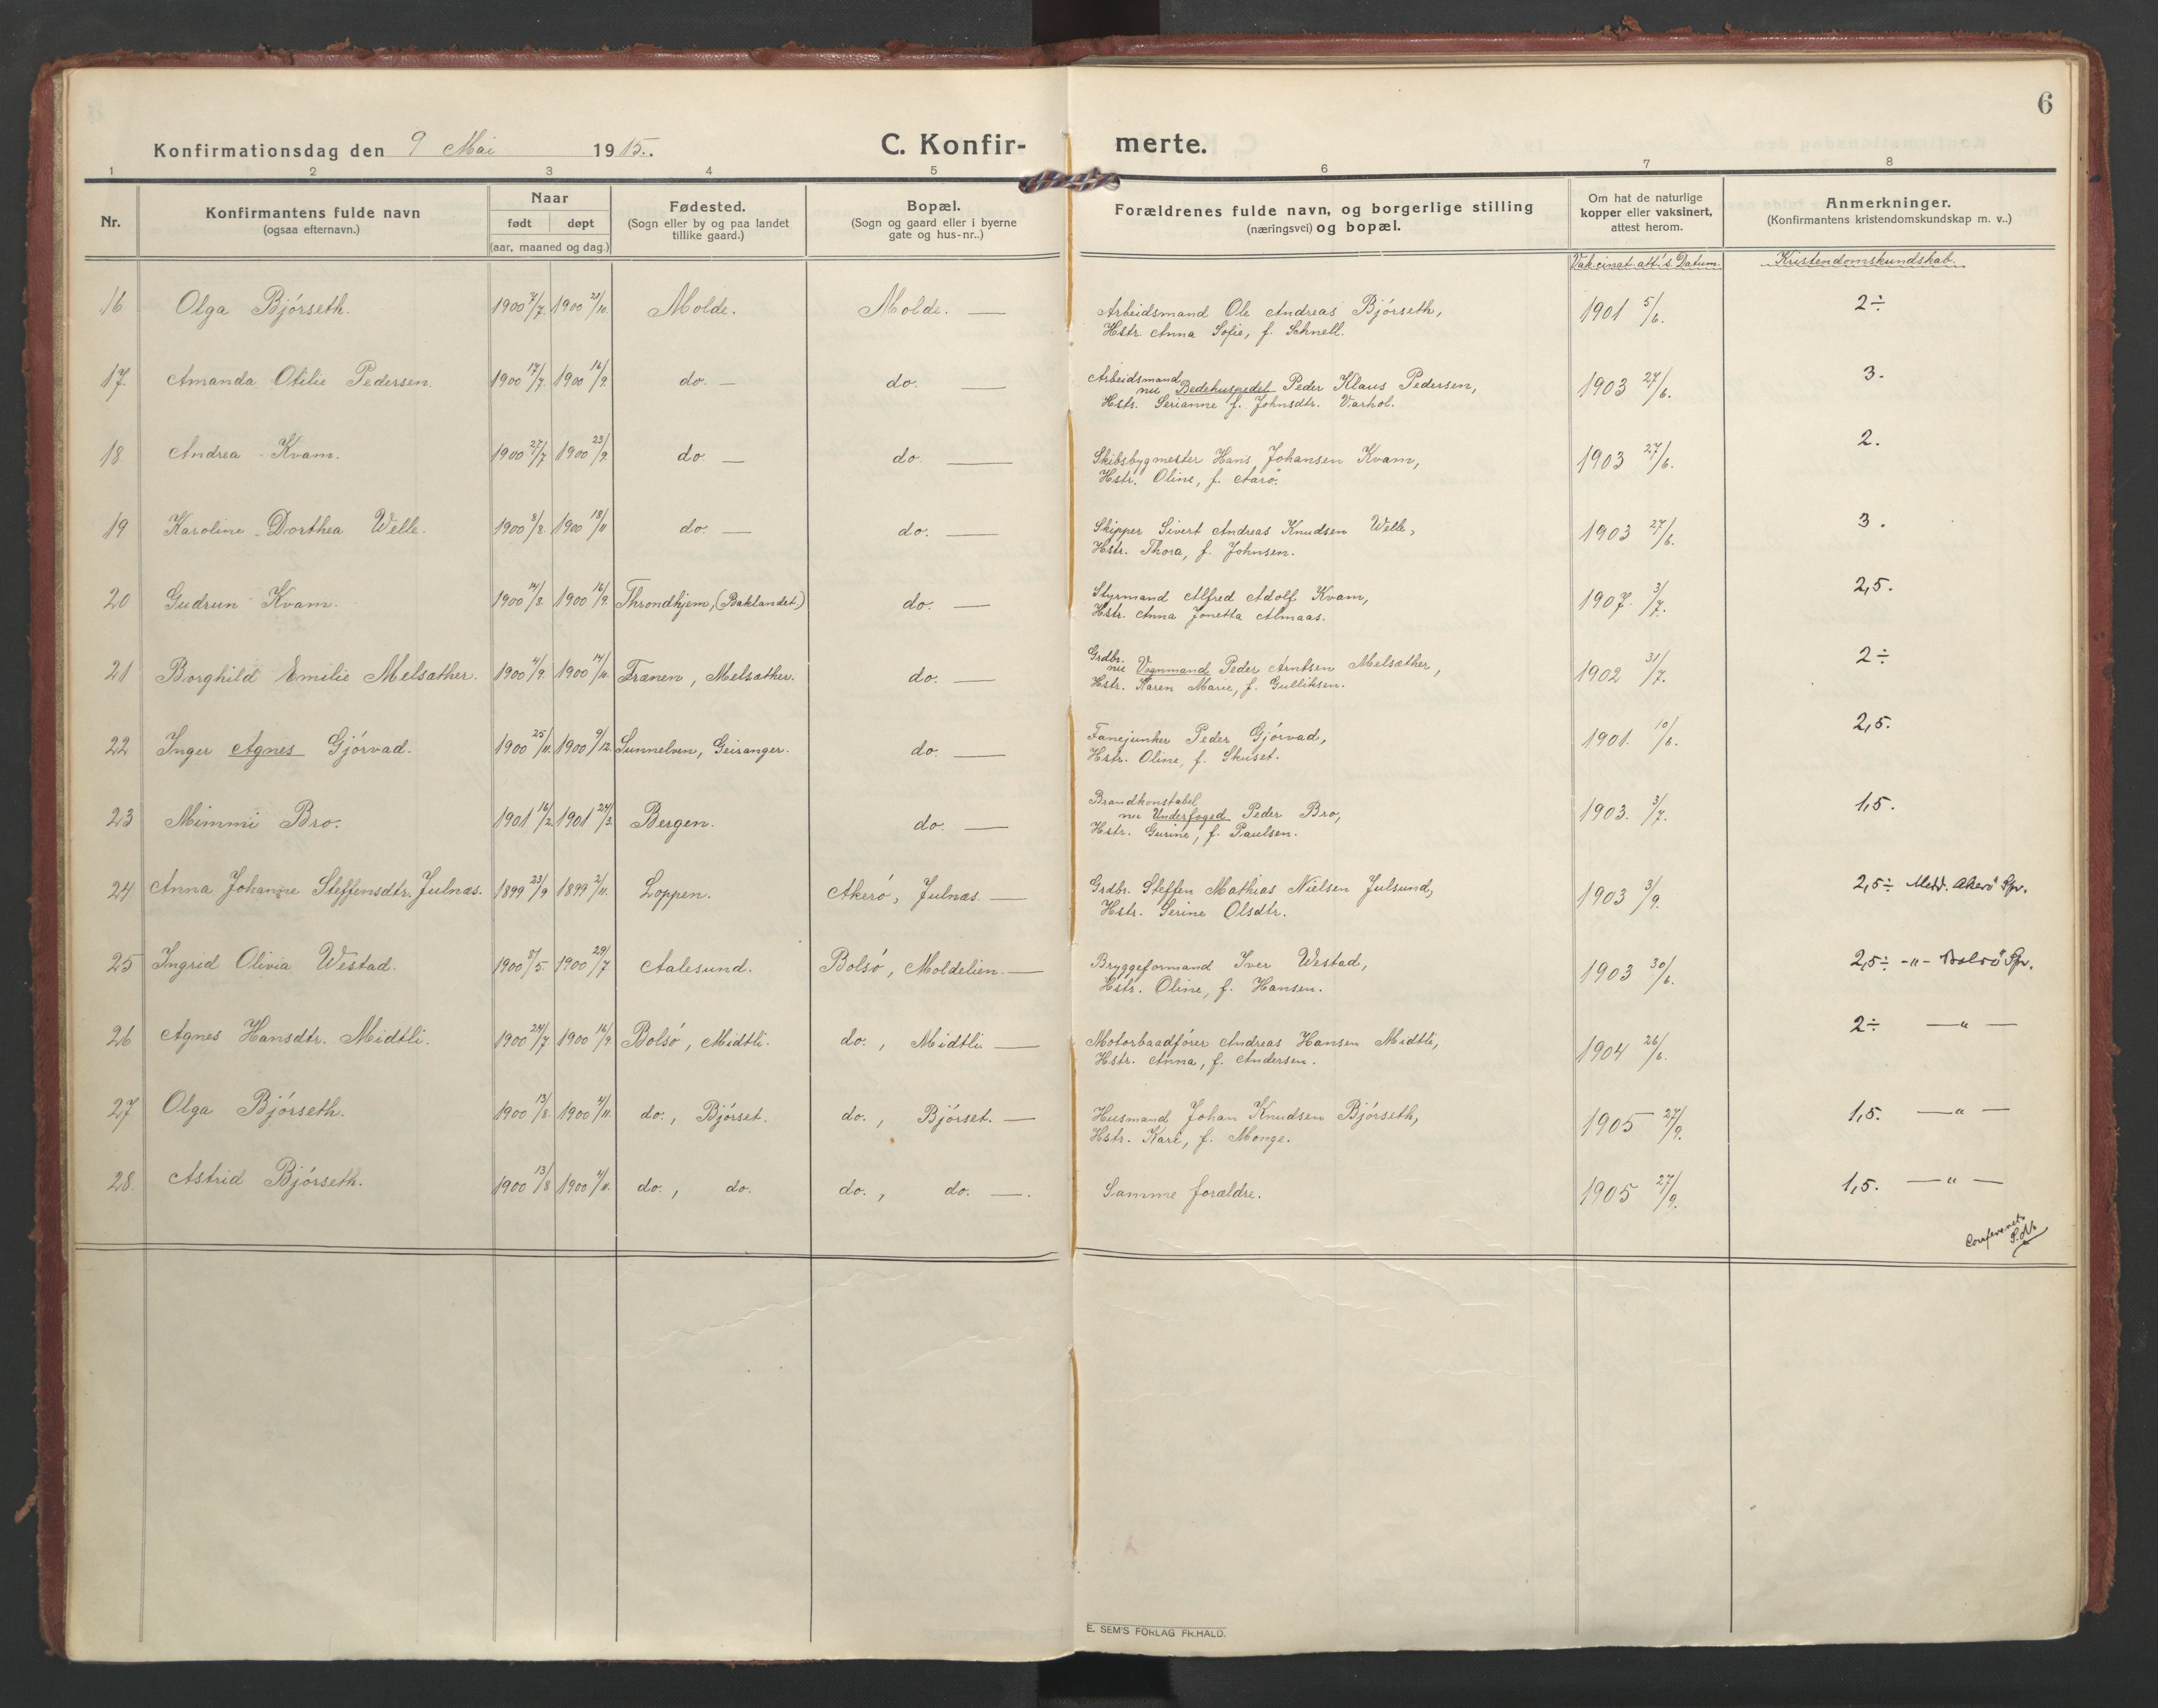 6
Konfirmationsdag den 9 Mai 1915. C. Konfir- merte.
1 2 3 4 5 6 7 8
Nr. Konfirmantens fulde navn (ogsaa efternavn.) Naar født døpt (aar, maaned og dag.) Fødested. (Sogn eller by og paa landet tillike gaard.) Bopæl. (Sogn og gaard eller i byerne gate og hus-nr..) Forældrenes fulde navn, og borgerlige stilling (næringsvei) og bopæl. Om hat de naturlige kopper eller vaksinert, attest herom. Anmerkninger. (Konfirmantens kristendomskundskap m. v..)
Vakcinat. att's. Datum. Kristendomskundskab.
16 Olga Bjørseth. 1900 7/7. 1900 21/10. Molde. Molde. — Arbeidsmand Ole Andreas Bjørseth, 1901 5/6. 2÷
Hstr. Anna Sofie, f. Schnell.
17. Amanda Otilie Pedersen. 1900 17/7. 1900 16/9. do. — do. — Arbeidsmand
nu Bedehuspedel Peder Klaus Pedersen, 1903 27/6. 3.
Hstr. Serianne f. Johnsdtr. Varhol.
18 Andrea Kvam. 1900 27/7 1900 23/9 do. — do. — Skibsbygmester Hans Johansen Kvam, 1903 27/6. 2.
Hstr. Oline, f. Aarø.
19 Karoline Dorthea Welle. 1900 8/8. 1900 18/11 do. — do. — Skipper Sivert Andreas Knudsen Welle, 1903 27/6. 3.
Hstr. Thora, f. Johnsen.
20 Gudrun Kvam. 1900 14/8. 1900 16/9. Throndhjem, (Baklandet.) do. — Styrmand Alfred Adolf Kvam, 1907. 3/7. 2,5.
Hstr. Anna Jonetta Almaas.
21 Borghild Emilie Melsæther. 1900 4/9. 1900 14/10. Frænen, Melsæther. do. — Grdbr.
nu Vognmand Peder Arntsen Melsæther, 1902 31/7. 2÷
Hstr. Karen Marie, f. Gulliksen.
22 Inger Agnes Gjørvad. 1900 25/11. 1900 9/12. Sunnelven, Geiranger. do — Fanejunker Peder Gjørvad, 1901. 10/6. 2,5.
Hstr. Oline, f. Skuset.
23 Mimmi Bro. 1901 16/2. 1901 24/3. Bergen. do. — Brandkonstabel
nu Underfoged Peder Bro, 1903. 3/7. 1,5.
Hstr. Gurine, f. Paulsen.
24 Anna Johanne Steffensdtr. Julnæs. 1899 23/9 1899 2/11. Loppen. Akerø, Julnæs. — Grdbr. Steffen Mathias Nielsen Julsund, 1903 3/9. 2,5÷ Medd. Akerø Spr.
Hstr. Serine Olsdtr.
25 Ingrid Olivia Westad. 1900 8/5. 1900 29/7 Aalesund. Bolsø, Moldelien. — Bryggeformand Iver Westad, 1903 30/6. 2,5÷ -"- Bolsø Spr.
Hstr. Oline, f. Hansen.
26 Agnes Hansdtr. Midtli. 1900 24/7 1900 16/9 Bolsø, Midtli. do., Midtli — Motorbaadfører Andreas Hansen Midtli, 1904 26/6. 2÷ —"—
Hstr. Anna, f. Andersen.
27 Olga Bjørseth. 1900 13/8. 1900 4/11. do., Bjørset. do., Bjørset. — Husmand Johan Knudsen Bjørseth, 1905 27/9. 1,5. —"—
Hstr. Kari, f. Monge.
28. Astrid Bjørseth. 1900 13/8 1900 4/11. do., do. do., do. —. Samme forældre. 1905 27/9. 1,5. —"—
E. SEM'S FORLAG FR.HALD.